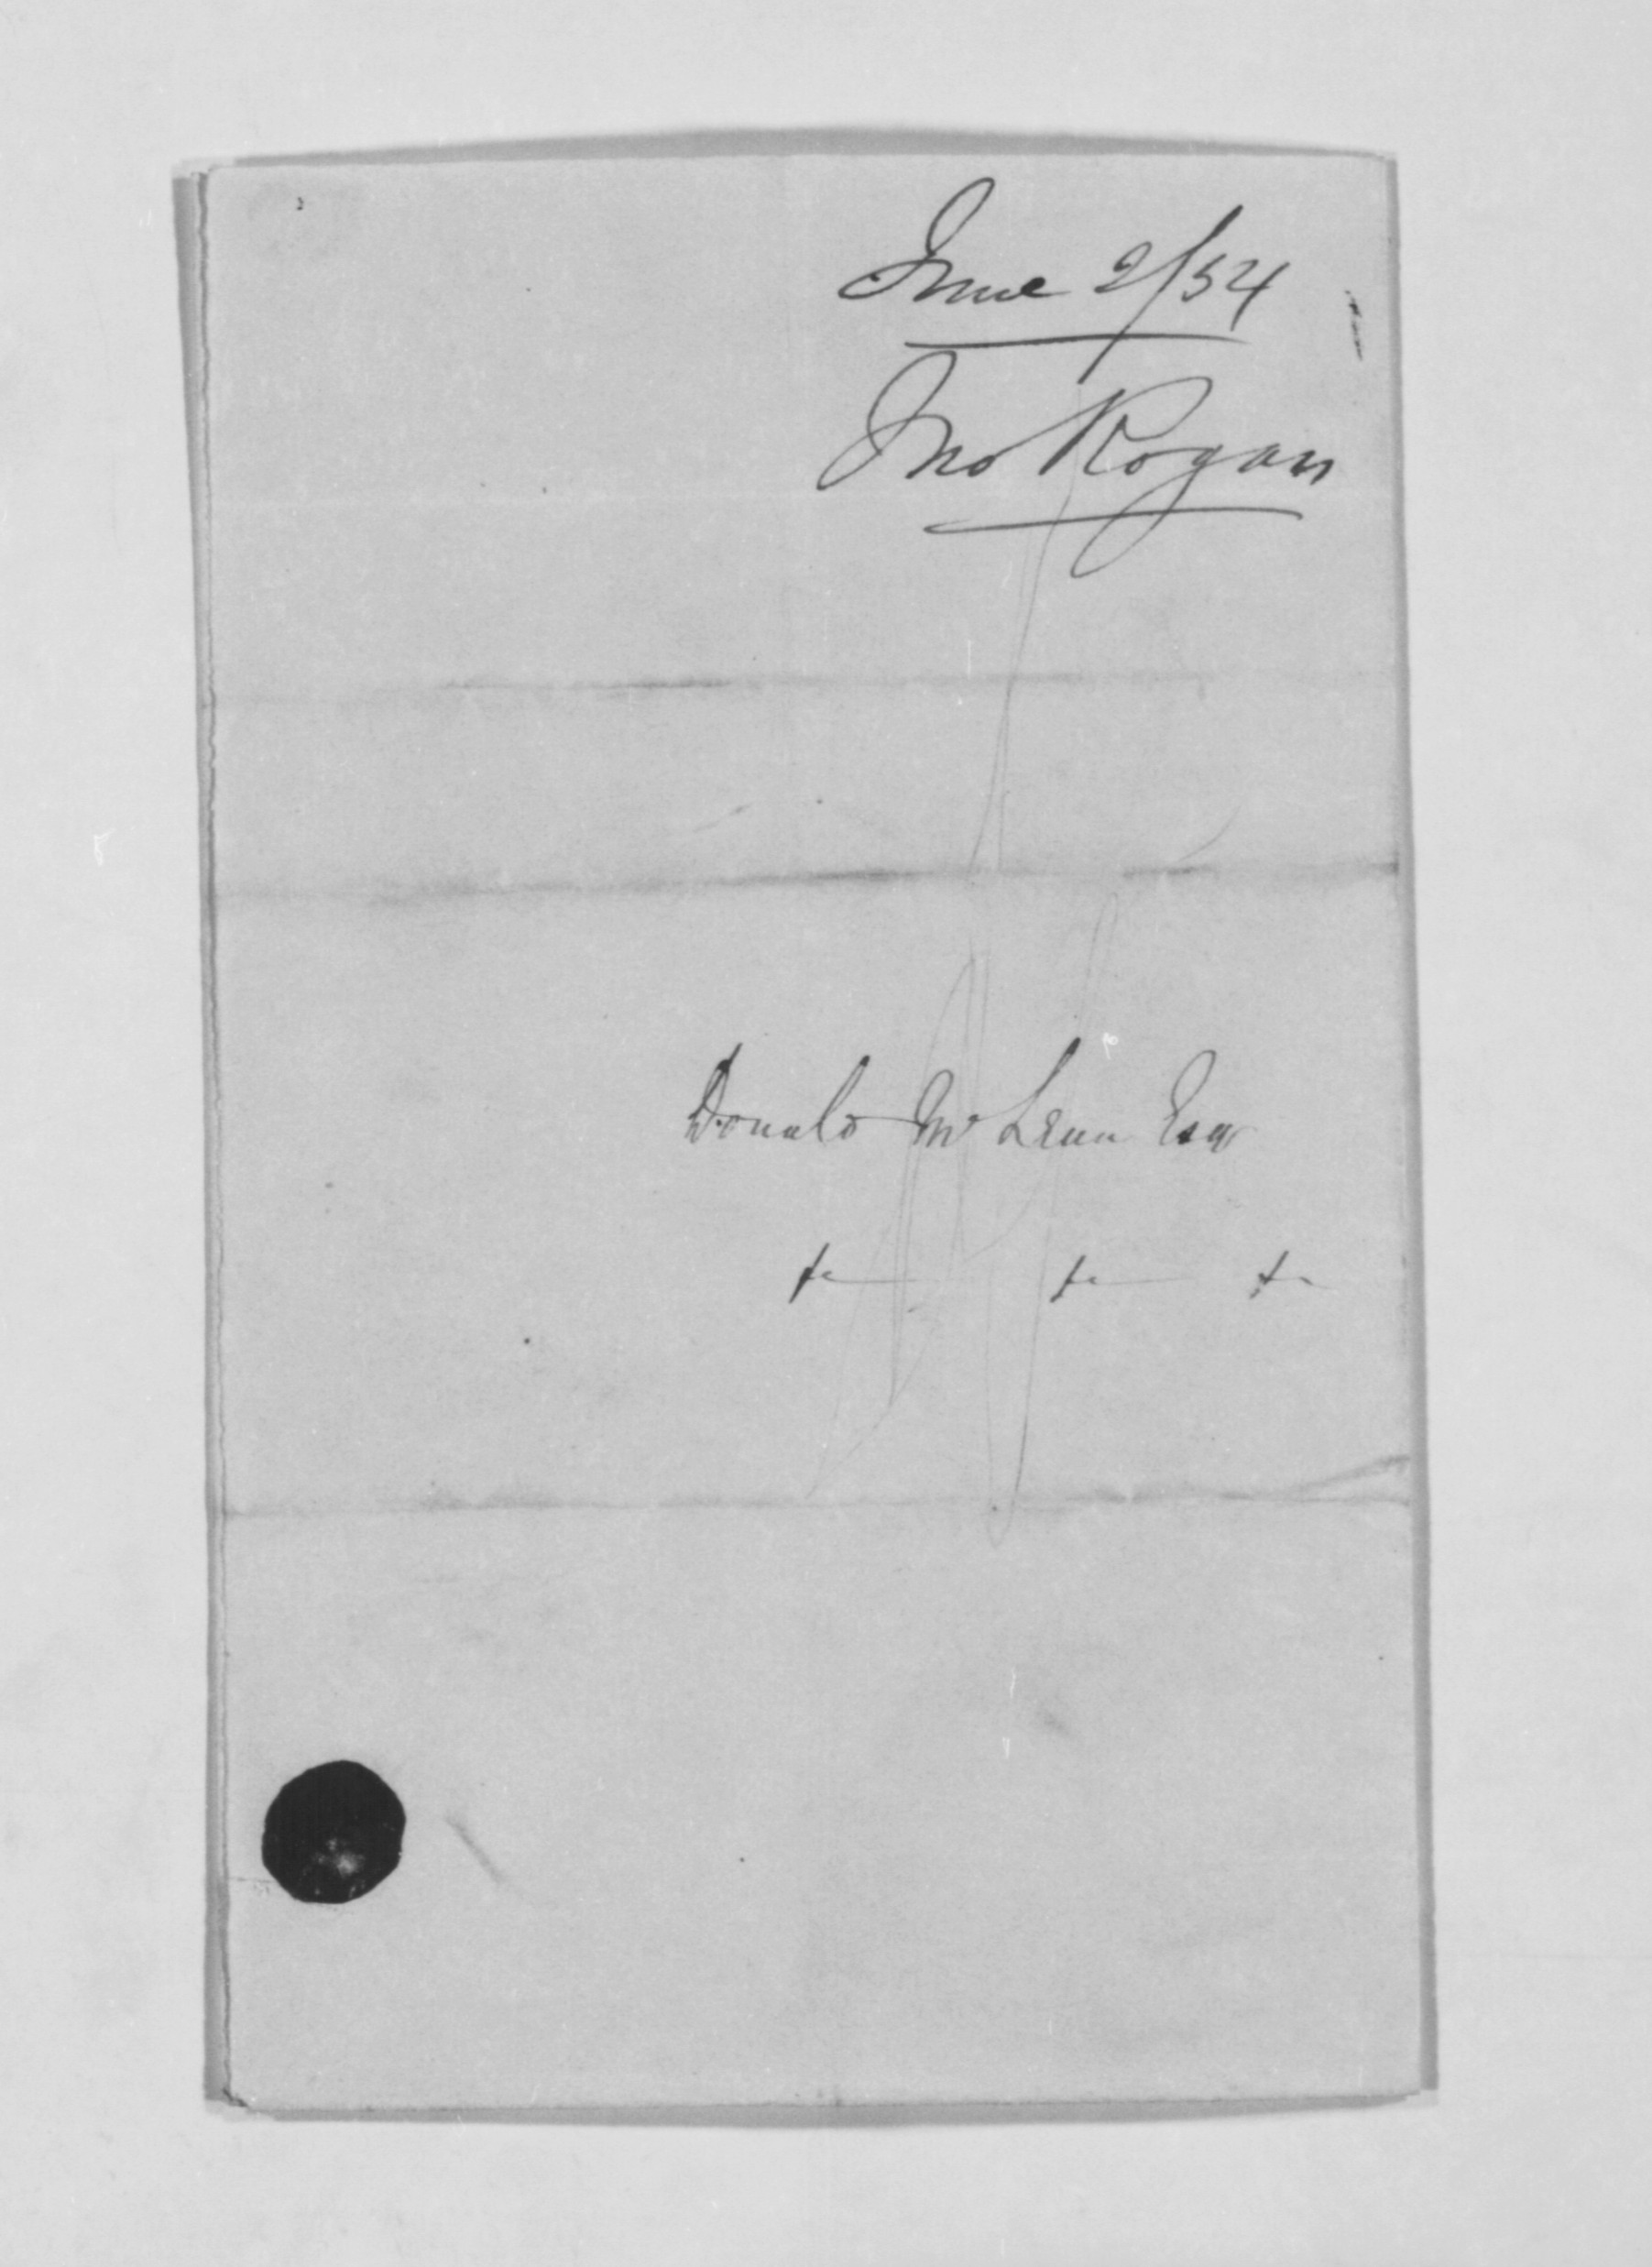 June 2/54
Jno Rogan
Donald McLean Esqr
&c &c &c